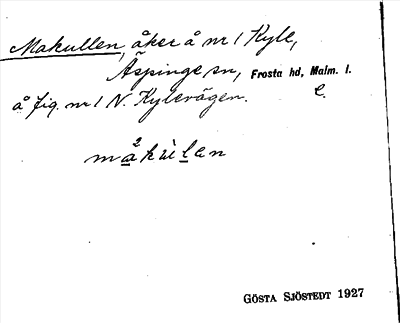 Makullen, åker å nr 1 Kyle,
Äspinge sn, Frosta hd, Malm. l.
å fig. nr 1 N. Kylevägen. C.
måkùlen
GÖSTA SJÖSTEDT 1927